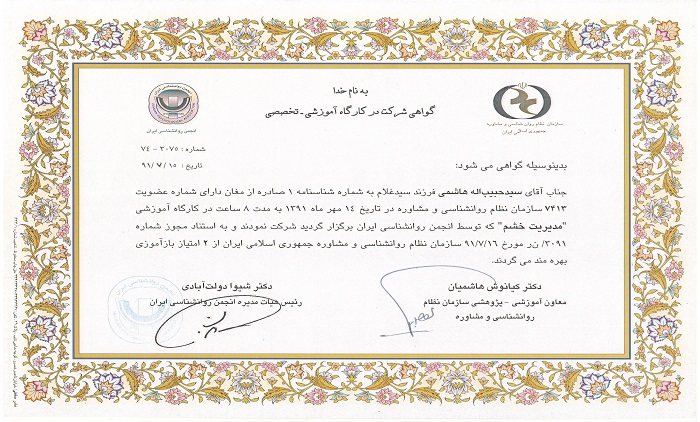 به نام خدا
گواهی شرکت در کارگاه آموزشی - تخصصی
سازمان نظام روان شناسی و مشاوره
جمهوری اسلامی ایران
انجمن روانشناسی ایران
شماره : ۳۰۷۵ - ۷۴
تاریخ : ۹۱/۷/۱۵
بدینوسیله گواهی می شود:
جناب آقای سیدحبیب‌اله هاشمی فرزند سیدغلام به شماره شناسنامه ۱ صادره از مغان دارای شماره عضویت
۷۴۱۳ سازمان نظام روانشناسی و مشاوره در تاریخ ۱۴ مهر ماه ۱۳۹۱ به مدت ۸ ساعت در کارگاه آموزشی
"مدیریت خشم" که توسط انجمن روانشناسی ایران برگزار گردید شرکت نمودند و به استناد مجوز شماره
۳۰۹۱/ن‌ر مورخ ۹۱/۷/۱۶ سازمان نظام روانشناسی و مشاوره جمهوری اسلامی ایران از ۲ امتیاز بازآموزی
بهره مند می گردند.
دکتر کیانوش هاشمیان
معاون آموزشی - پژوهشی سازمان نظام
روانشناسی و مشاوره
دکتر شیوا دولت‌آبادی
رئیس هیأت مدیره انجمن روانشناسی ایران